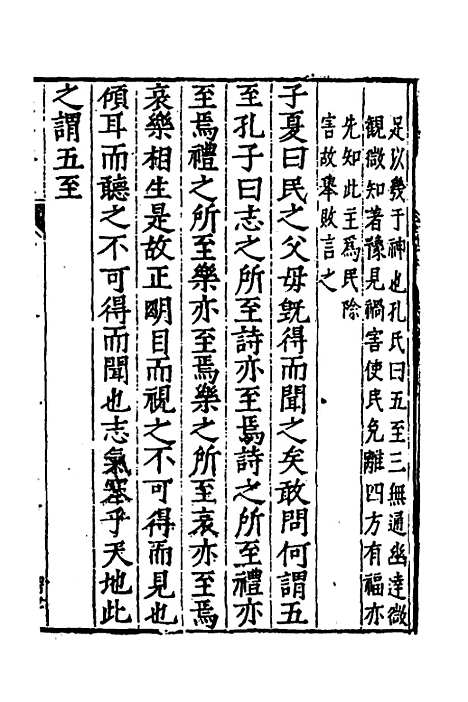 足以幾于神也孔氏曰五至三無通幽達微
觀微知著豫見禍害使民免離四方有福亦
先知此主爲民除
害故舉敗言之
子夏曰民之父母旣得而聞之矣敢問何謂五
至孔子曰志之所至詩亦至焉詩之所至禮亦
至焉禮之所至樂亦至焉樂之所至哀亦至焉
哀樂相生是故正明目而視之不可得而見也
傾耳而聽之不可得而聞也志氣塞乎天地此
之謂五至